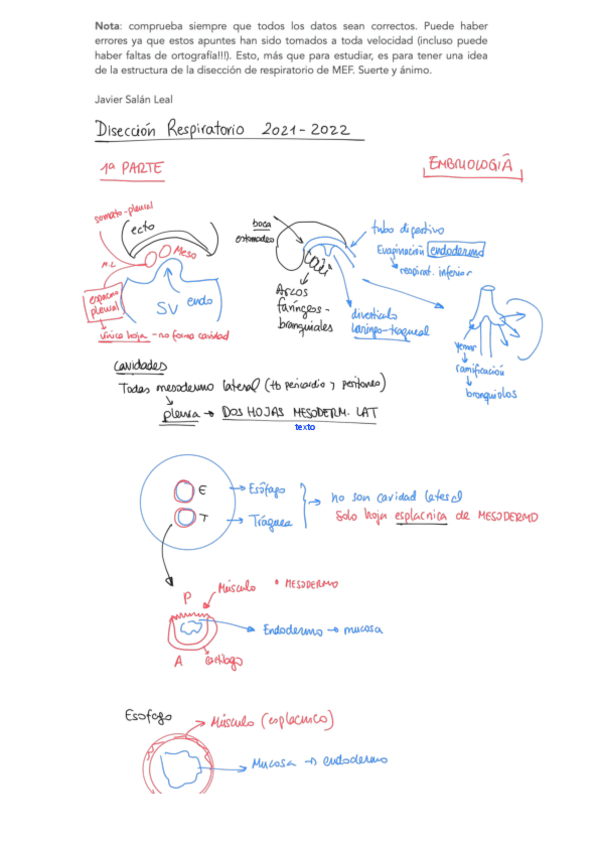 Nota: comprueba siempre que todos los datos sean correctos. Puede haber
errores ya que estos apuntes han sido tomados a toda velocidad (incluso puede
haber faltas de ortografía!!!). Esto, más que para estudiar, es para tener una idea
de la estructura de la disección de respiratorio de MEF. Suerte y ánimo.
Javier Salán Leal
Disección Respiratorio 2021-2022
1ª PARTE
EMBRIOLOGÍA
somato-pleural
ecto
Meso
M.L
espacio
pleural
SV
endo
única hoja - no forma cavidad
boca
estomodeo
tubo digestivo
Evaginación endodermo
respirat. inferior
Arcos
faríngeos-
branquiales
divertículo
laringo-traqueal
yemas
ramificación
bronquiolos
Cavidades
Todas mesodermo lateral (tb pericardio y peritoneo)
pleura → DOS HOJAS MESODERM. LAT
texto
E → Esófago
T → Tráquea
→ no son cavidad lateral
Solo hoja esplacnica de MESODERMO
P
Músculo • MESODERMO
Endodermo → mucosa
A
Cartílago
Esofago
Músculo (esplacnico)
Mucosa → endodermo